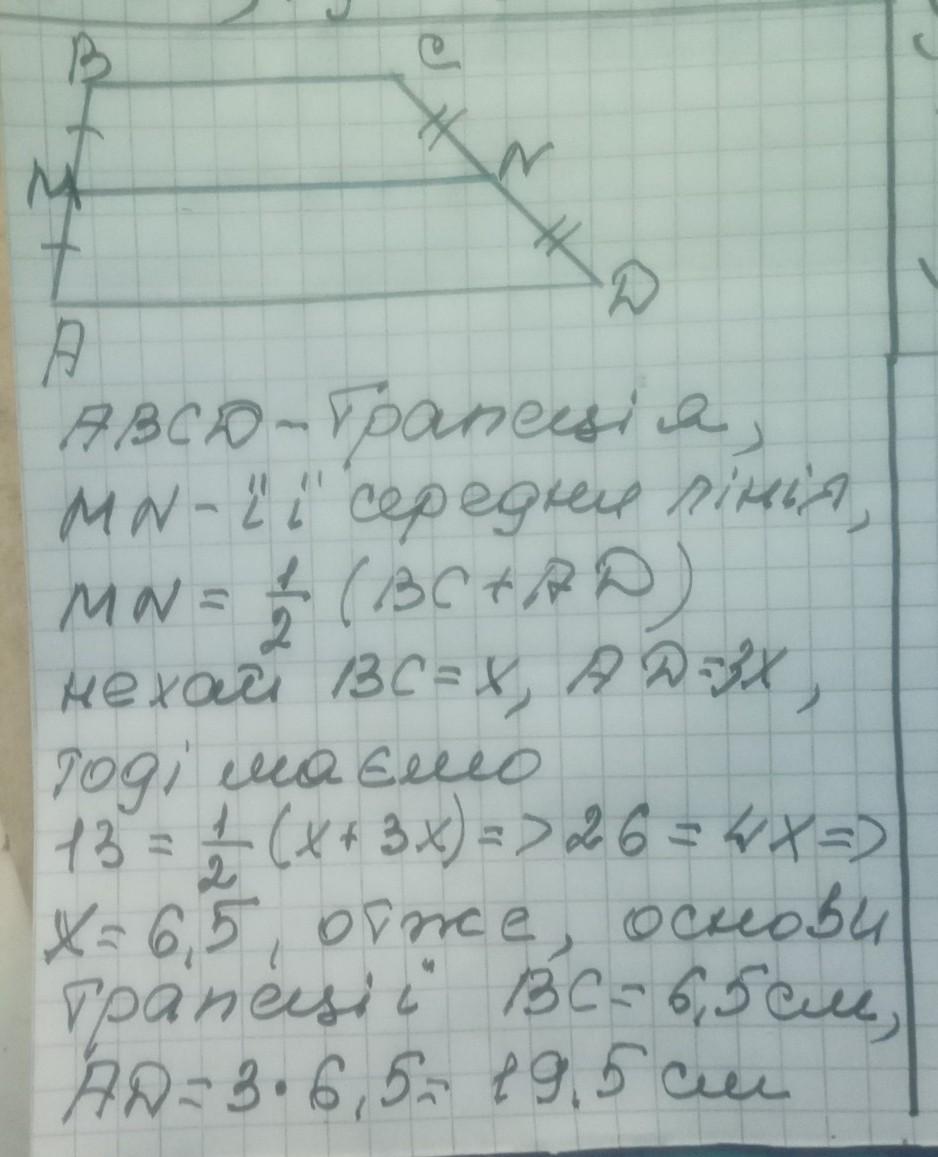 B C
M N
A D
ABCD - трапеція,
MN - її середня лінія,
MN = 1/2 (BC + AD)
нехай BC = x, AD = 3x,
тоді маємо
13 = 1/2 (x + 3x) => 26 = 4x =>
x = 6,5, отже, основи
трапеції BC = 6,5 см,
AD = 3 · 6,5 = 19,5 см